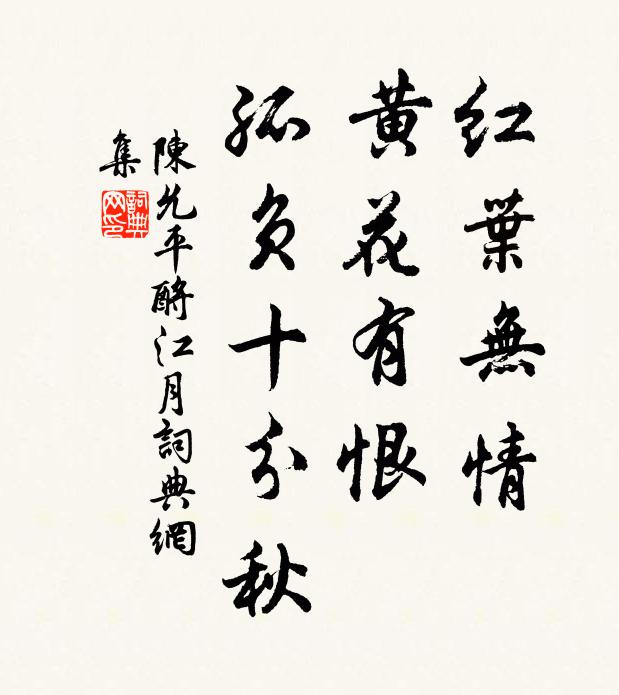 红葉無情
黄花有恨
孤负十分秋
陳允平酹江月詞典網
集
詞典网印